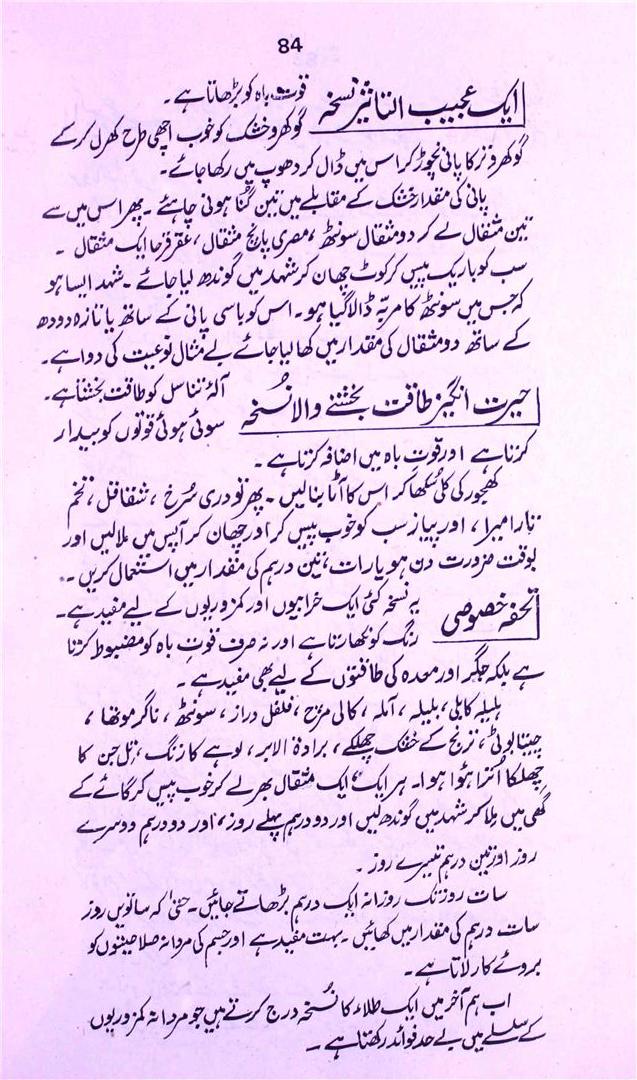 84
ایک عجیب التاثیر نسخہ قوت باہ کو بڑھاتا ہے۔
گوکھرو خشک کو خوب اچھی طرح کھرل کر کے
گوکھرو تر کا پانی نچوڑ کر اس میں ڈال کر دھوپ میں رکھا جائے۔
پانی کی مقدار خشک کے مقابلے میں تین گنا ہونی چاہئے۔ پھر اس میں سے
تین مثقال لے کر دو مثقال سونٹھ، مصری پانچ مثقال، عقر قرحا ایک مثقال۔
سب کو باریک پیس کر کوٹ چھان کر شہد میں گوندھ لیا جائے۔ شہد ایسا ہو
کہ جس میں سونٹھ کا مربہ ڈالا گیا ہو۔ اس کو باسی پانی کے ساتھ یا تازہ دودھ
کے ساتھ دو مثقال کی مقدار میں کھا لیا جائے بے مثال نوعیت کی دوا ہے۔
حیرت انگیز طاقت بخشنے والا نُسخہ آلۂ تناسل کو طاقت بخشتا ہے۔
سوئی ہوئی قوتوں کو بیدار
کرتا ہے اور قوتِ باہ میں اضافہ کرتا ہے۔
کھجور کی کلی سُکھا کر اس کا آٹا بنا لیں۔ پھر تودری سُرخ، شقاقل، تخم
تارا میرا، اور پیاز سب کو خوب پیس کر اور چھان کر آپس میں ملا لیں اور
بوقت ضرورت دن ہو یا رات، تین درہم کی مقدار میں استعمال کریں۔
تحفہ خصوصی یہ نسخہ کئی ایک خرابیوں اور کمزوریوں کے لیے مفید ہے۔
رنگ کو نکھارتا ہے اور نہ صرف قوتِ باہ کو مضبوط کرتا
ہے بلکہ جگر اور معدہ کی طاقتوں کے لیے بھی مفید ہے۔
ہلیلہ کابلی، بلیلہ، آملہ، کالی مرچ، فلفل دراز، سونٹھ، ناگر موتھا،
چیتا بوٹی، ترنج کے خشک چھلکے، برادۃ الابر، لوہے کا زنگ، تل جن کا
چھلکا اُترا ہوا ہو۔ ہر ایک ایک مثقال بھر لے کر خوب پیس کر گائے کے
گھی میں ملا کر شہد میں گوندھ لیں اور دو درہم پہلے روز، اور دو درہم دوسرے
روز اور تین درہم تیسرے روز۔
سات روز تک روزانہ ایک درہم بڑھاتے جائیں۔ حتیٰ کہ ساتویں روز
سات درہم کی مقدار میں کھائیں۔ بہت مفید ہے اور جسم کی مردانہ صلاحیتوں کو
بروئے کار لاتا ہے۔
اب ہم آخر میں ایک طلاء کا نُسخہ درج کرتے ہیں جو مردانہ کمزوریوں
کے سلسلے میں بے حد فوائد رکھتا ہے۔